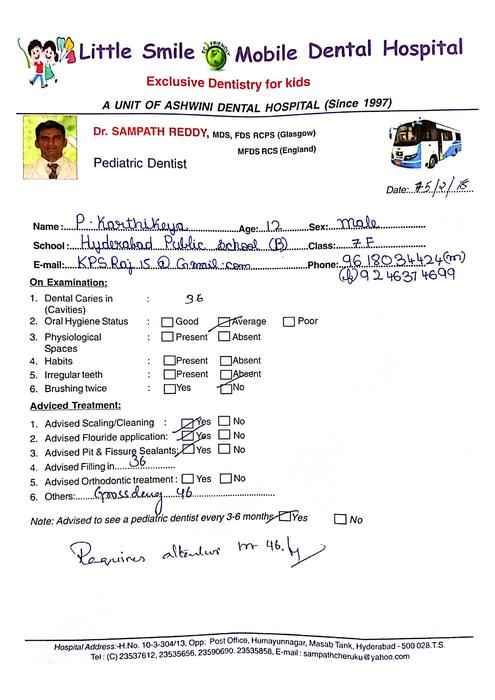 Little Smile Mobile Dental Hospital
Exclusive Dentistry for kids
A UNIT OF ASHWINI DENTAL HOSPITAL (Since 1997)
Dr. SAMPATH REDDY, MDS, FDS RCPS (Glasgow)
MFDS RCS (England)
Pediatric Dentist
Date:
Name: P. Karthikeya Age: 12 Sex: Male
School: Hyderabad Public School (B) Class: 7 F
E-mail: KPSRaj15@Gmail.com Phone: 9618034424(m)
9246374699
On Examination:
1. Dental Caries in : 36
(Cavities)
2. Oral Hygiene Status : Good Average Poor
3. Physiological : Present Absent
Spaces
4. Habits : Present Absent
5. Irregular teeth : Present Absent
6. Brushing twice : Yes No
Adviced Treatment:
1. Advised Scaling/Cleaning : Yes No
2. Advised Flouride application: Yes No
3. Advised Pit & Fissure Sealants: Yes No
4. Advised Filling in 36
5. Advised Orthodontic treatment : Yes No
6. Others: 46
Note: Advised to see a pediatric dentist every 3-6 months Yes No
Requires 46.
Hospital Address:-H.No. 10-3-304/13, Opp: Post Office, Humayunnagar, Masab Tank, Hyderabad - 500 028.T.S.
Tel : (C) 23537612, 23535656, 23590690, 23535858, E-mail : sampathcheruku@yahoo.com